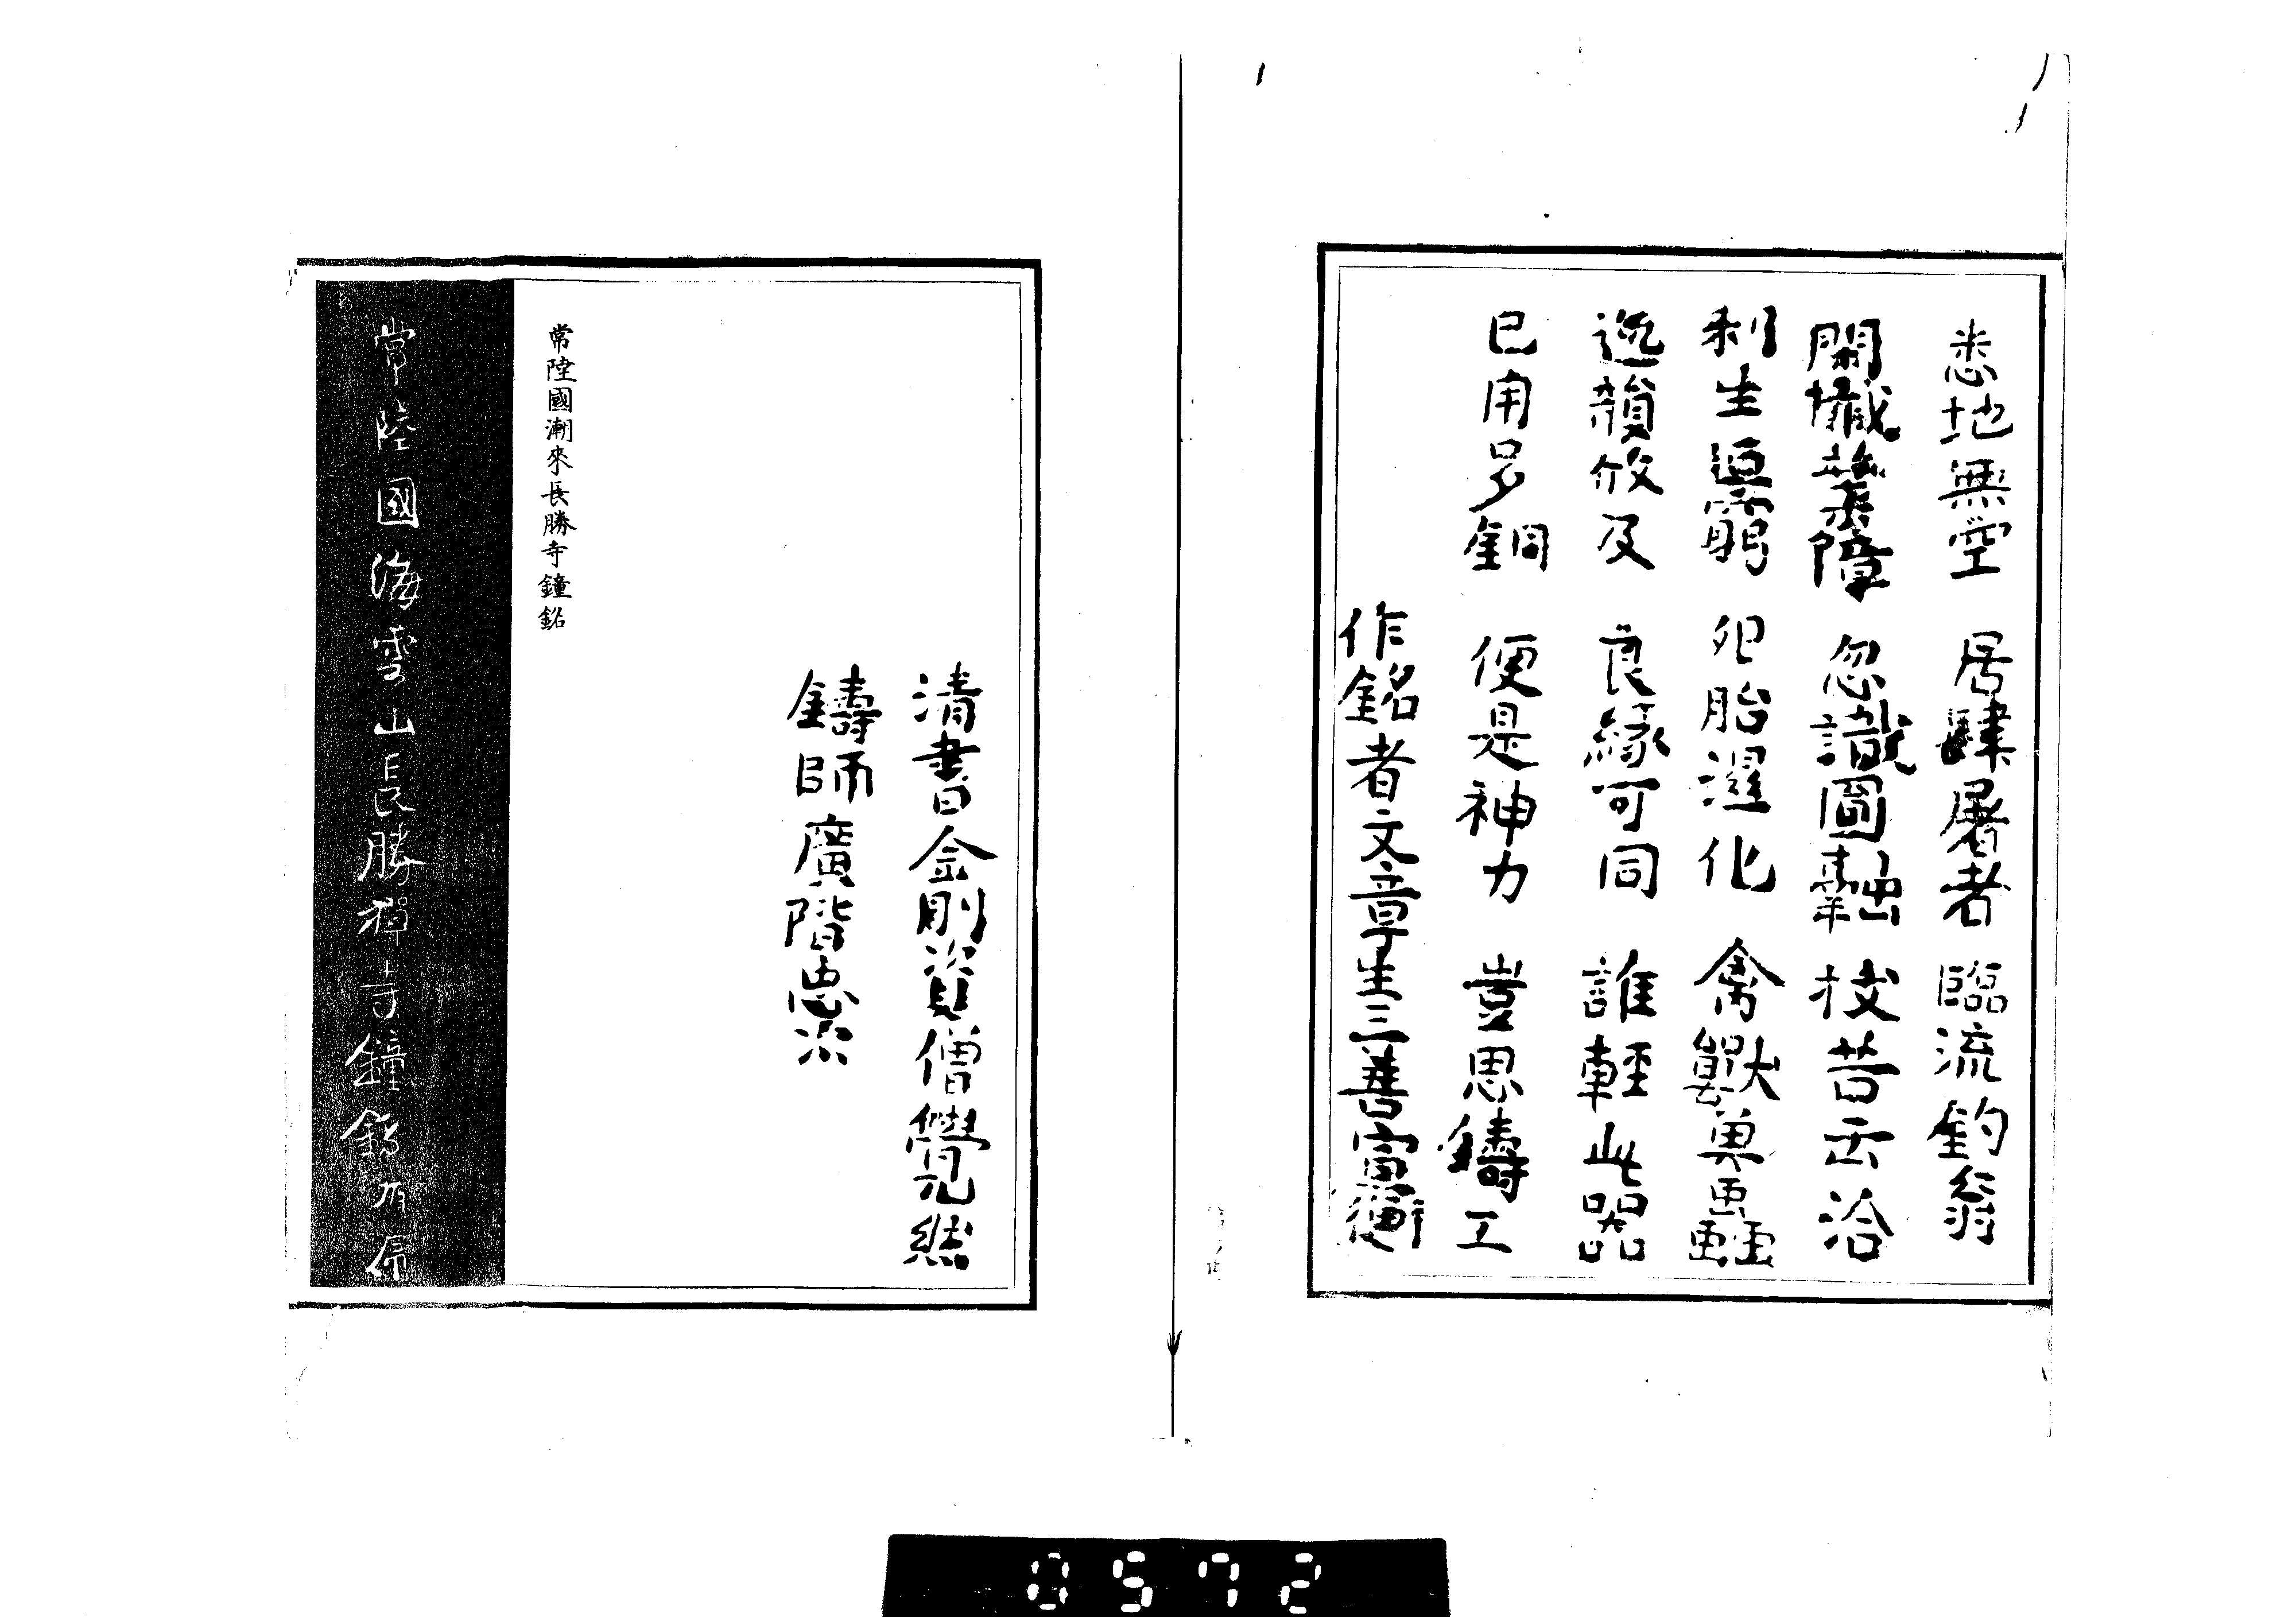 悉地無空 居肆屠者 臨流釣翁
開懺業障 忽識圓融 抜苦云洽
利生逼窮 卵胎濕化 禽獸魚蟲
遐齡攸及 良縁可同 誰輕此器
已用多銅 便是神力 豈思鑄工
作銘者文章生三善富衡
清書金剛資僧覺然
鑄師廣階忠次
常陸國潮來長勝寺鐘銘
常陸國海雲山長勝禪寺鐘銘有序
0572